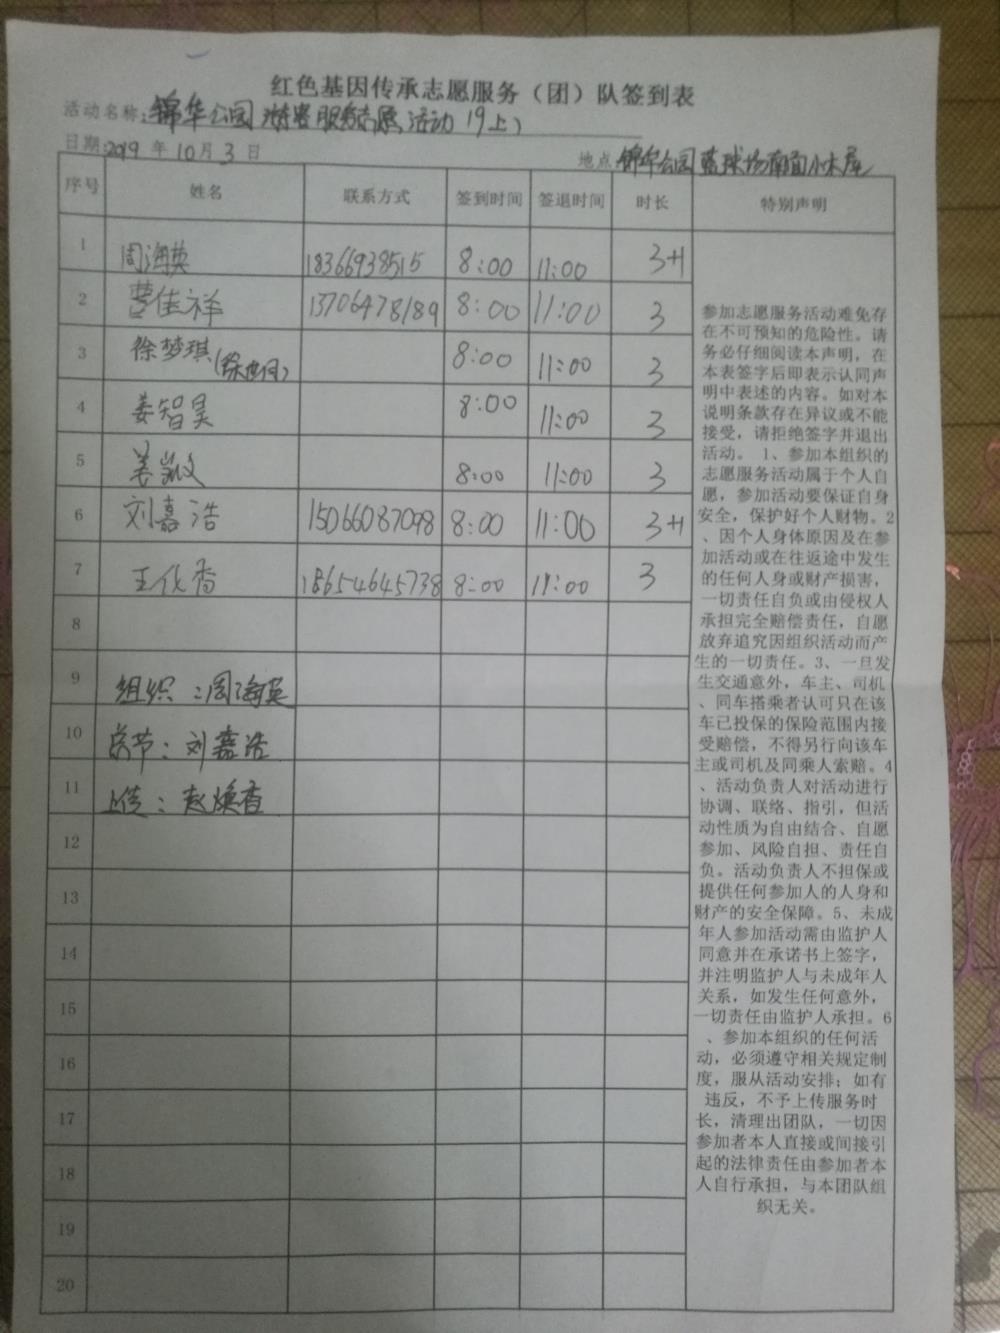 红色基因传承志愿服务（团）队签到表
活动名称：锦华公园游客服务志愿活动（9上）
日期：2019 年 10 月 3 日 地点 锦华公园篮球场南面小木屋
序号 姓名 联系方式 签到时间 签退时间 时长 特别声明
1 周海英 18366938515 8:00 11:00 3+1
2 曹佳祥 13706478189 8:00 11:00 3
3 徐梦琪 8:00 11:00 3
4 姜智昊 8:00 11:00 3
5 姜 8:00 11:00 3
6 刘嘉浩 15066087098 8:00 11:00 3+1
7 王代香 18654645738 8:00 11:00 3
8
9 组织：周海英
10 总节：刘嘉浩
11 上传：赵焕香
12
13
14
15
16
17
18
19
20
参加志愿服务活动难免存
在不可预知的危险性。请
务必仔细阅读本声明，在
本表签字后即表示认同声
明中表述的内容。如对本
说明条款存在异议或不能
接受，请拒绝签字并退出
活动。 1、参加本组织的
志愿服务活动属于个人自
愿，参加活动要保证自身
安全，保护好个人财物。2
、因个人身体原因及在参
加活动或在往返途中发生
的任何人身或财产损害，
一切责任自负或由侵权人
承担完全赔偿责任，自愿
放弃追究因组织活动而产
生的一切责任。3、一旦发
生交通意外，车主、司机
、同车搭乘者认可只在该
车已投保的保险范围内接
受赔偿，不得另行向该车
主或司机及同乘人索赔。4
、活动负责人对活动进行
协调、联络、指引，但活
动性质为自由结合、自愿
参加、风险自担、责任自
负。活动负责人不担保或
提供任何参加人的人身和
财产的安全保障。5、未成
年人参加活动需由监护人
同意并在承诺书上签字，
并注明监护人与未成年人
关系，如发生任何意外，
一切责任由监护人承担。6
、参加本组织的任何活
动，必须遵守相关规定制
度，服从活动安排；如有
违反，不予上传服务时
长，清理出团队，一切因
参加者本人直接或间接引
起的法律责任由参加者本
人自行承担，与本团队组
织无关。